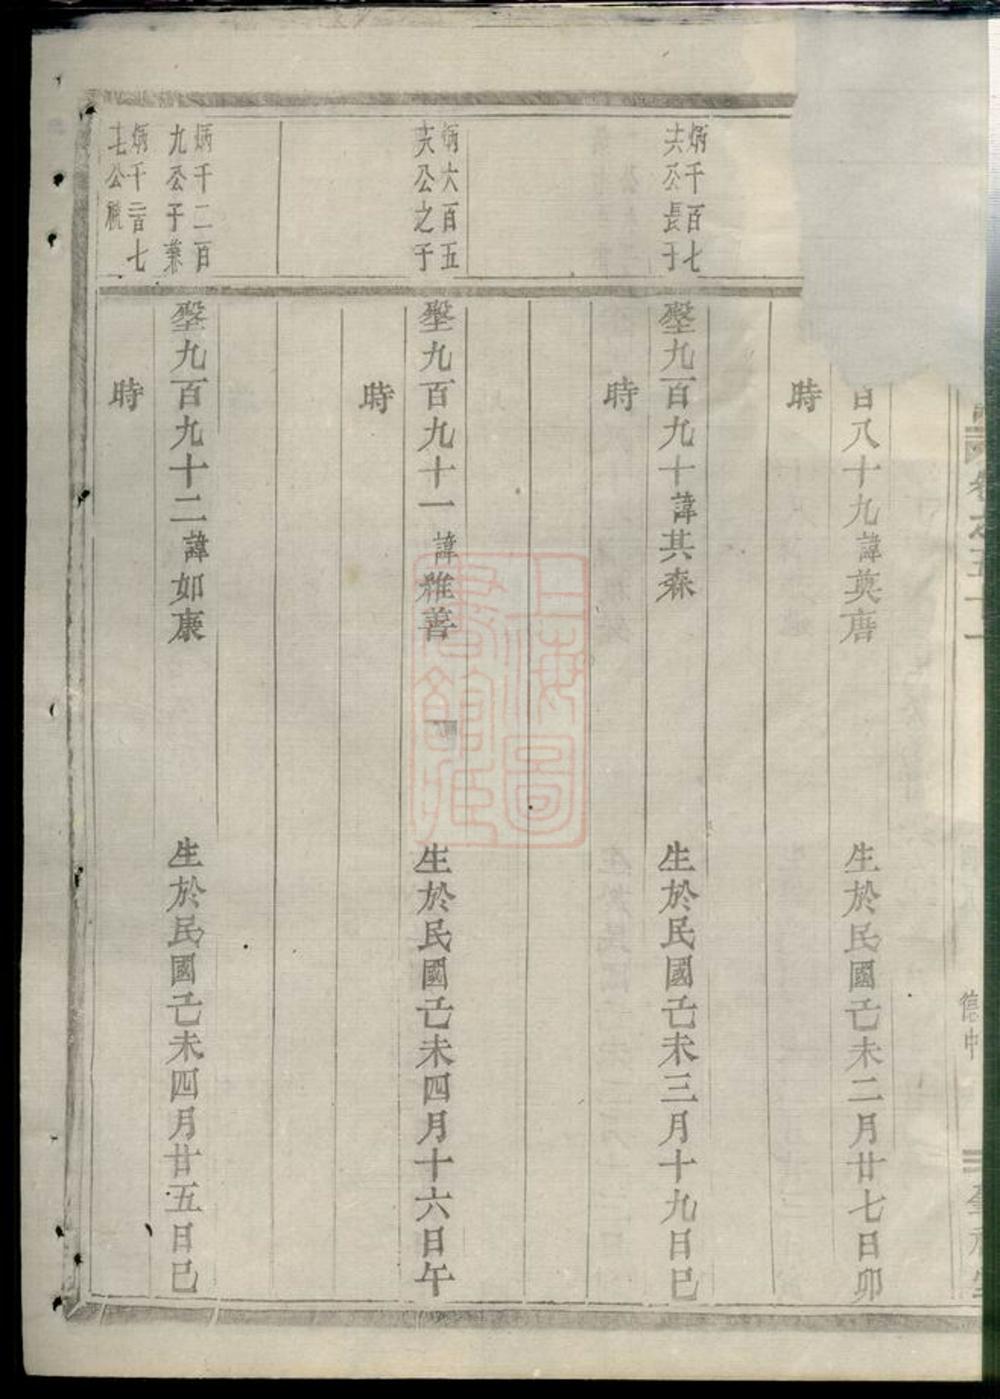 百八十九諱奠唐
生於民國己未二月廿七日卯
時
炳千百七
夫公長子
壑九百九十諱其森
生於民國己未三月十九日巳
時
炳六百五
夫公之子
壑九百九十一諱雅善
生於民國己未四月十六日午
時
炳千二百
九公子兼
炳千二百七
公祧
壑九百九十二諱如康
生於民國己未四月廿五日巳
時
上海圖
書館藏